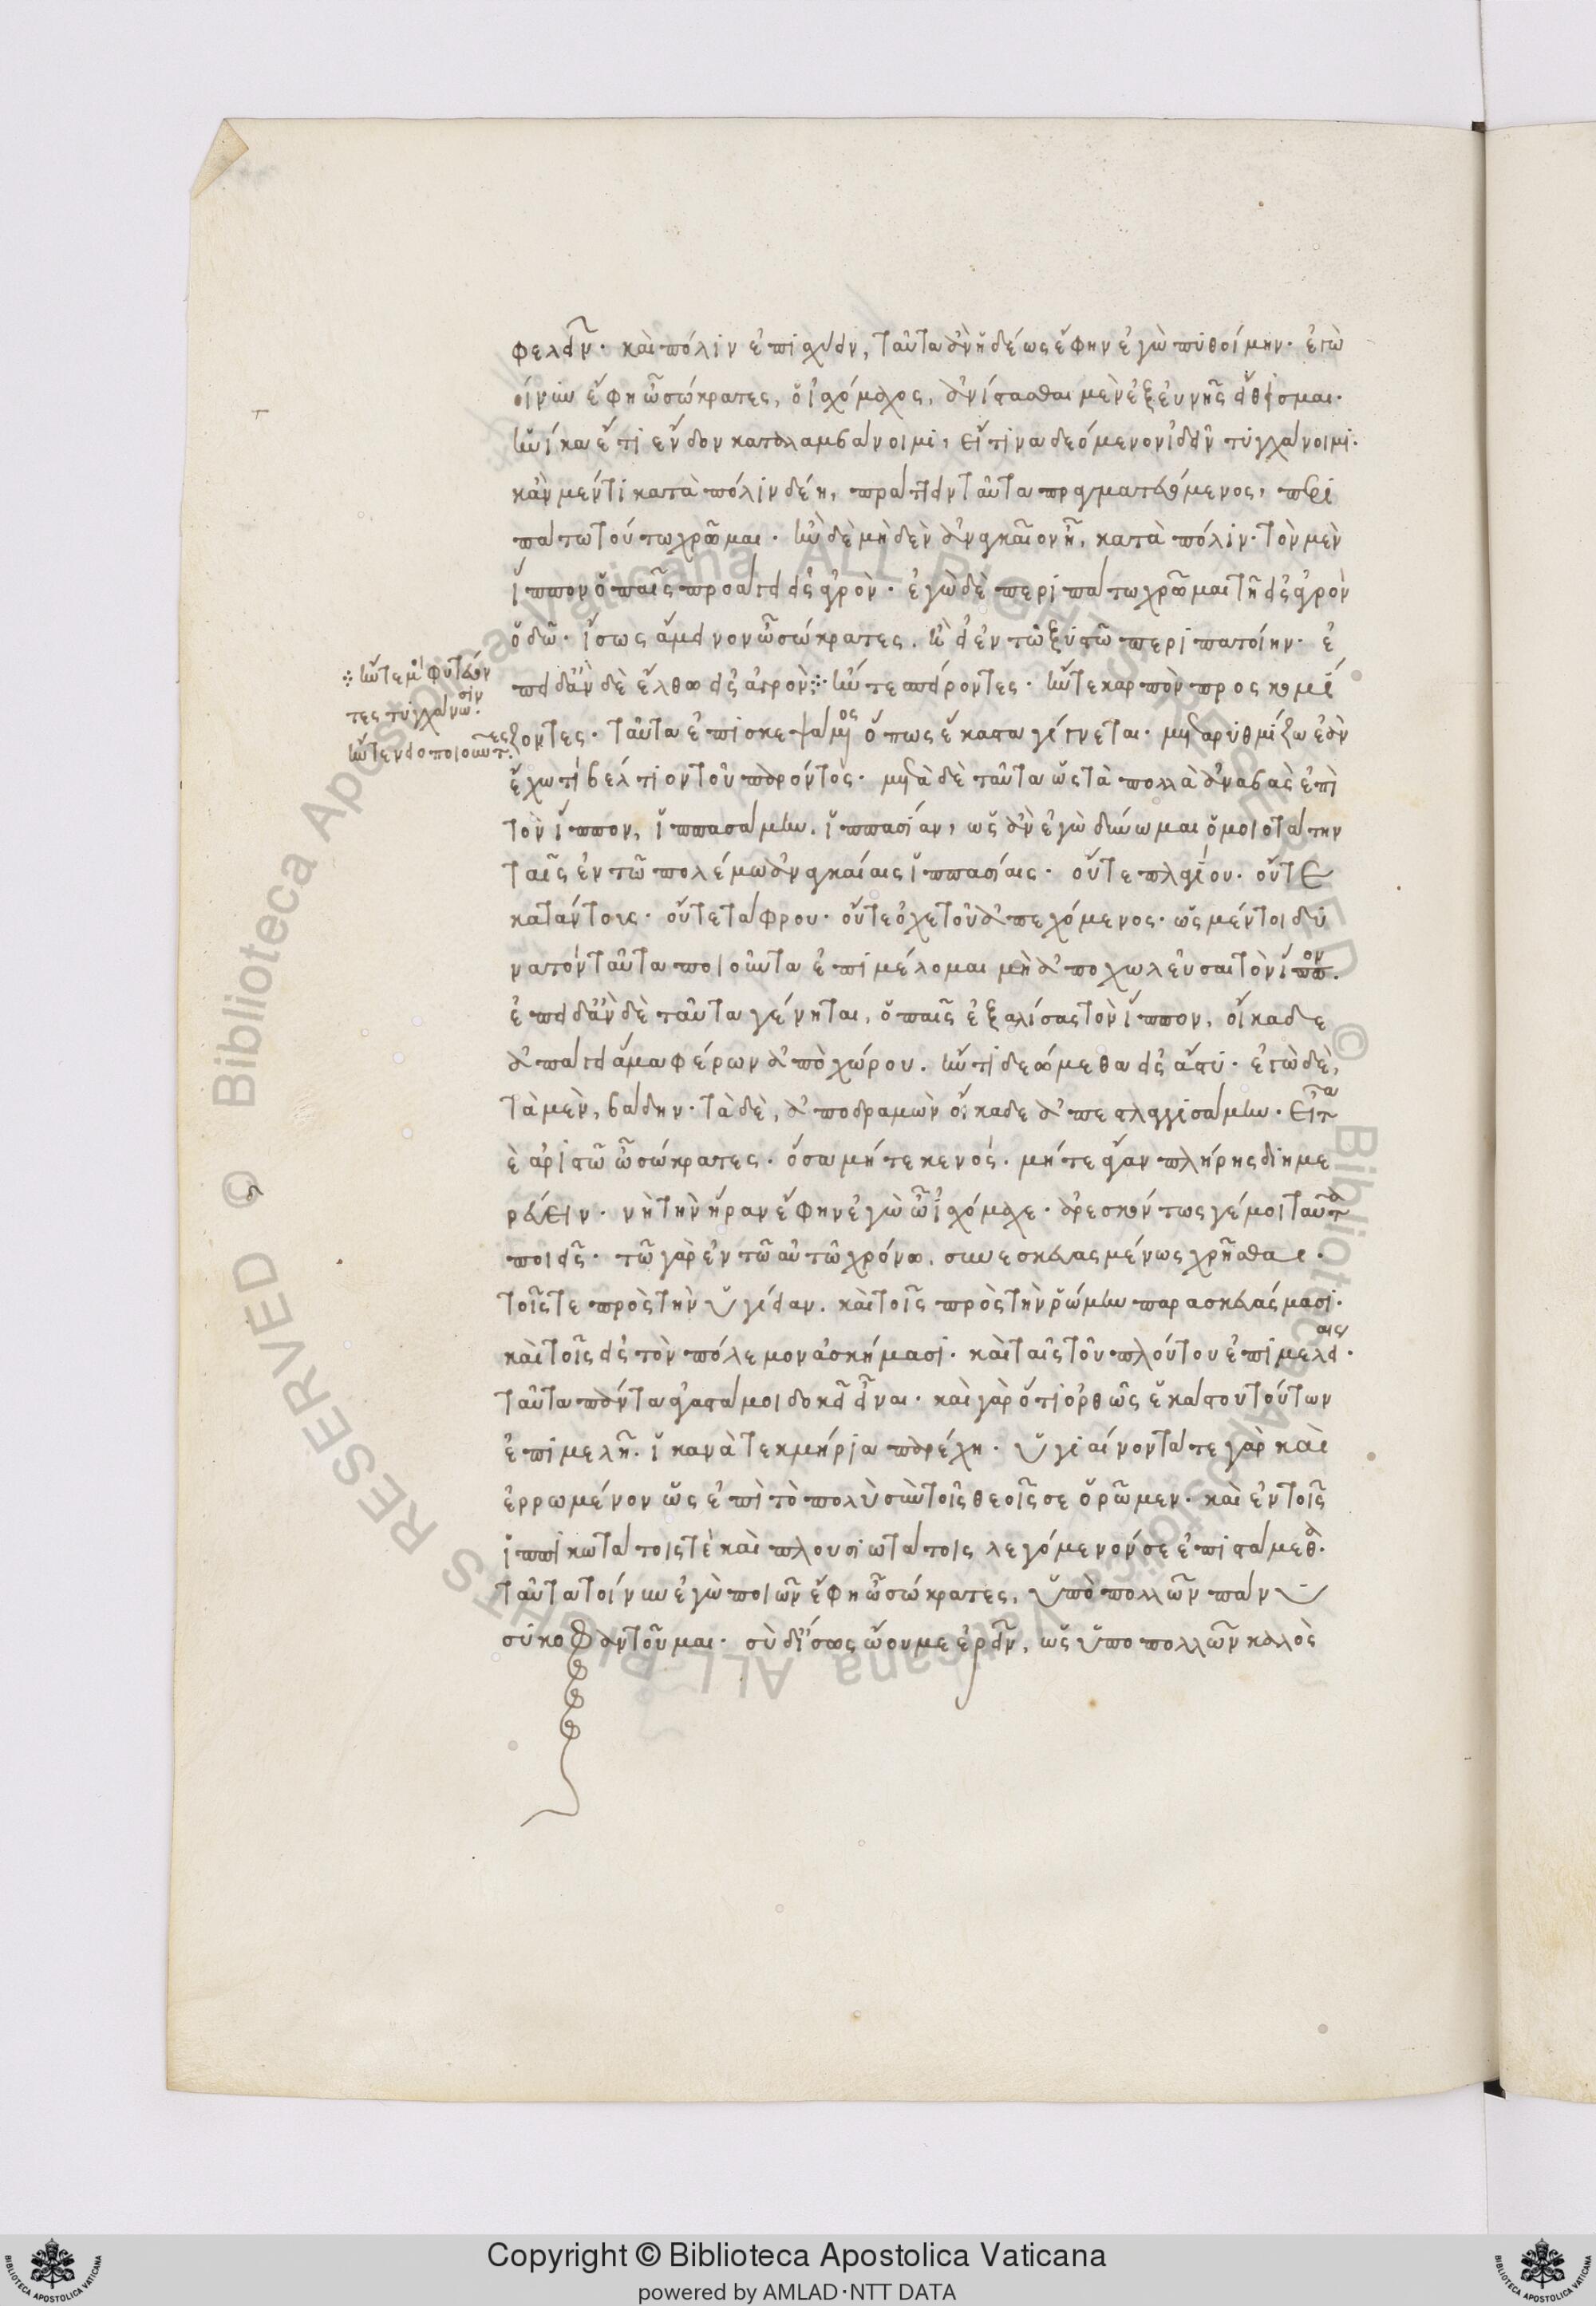 φελεῖν· καὶ πόλιν ἐπισχύειν, ταῦτα ἂν ἡδέως ἔφην ἐγὼ πυθοίμην· ἐγὼ
τοίνυν ἔφη ὦ σώκρατες, ὁ ἰσχόμαχος, ἀνίστασθαι μὲν ἐξ εὐνῆς εἴθισμαι·
ἡνίκα ἔτι ἔνδον καταλαμβάνοιμι, εἴ τινα δεόμενον ἰδεῖν τυγχάνοιμι·
κἂν μέν τι κατὰ πόλιν δέη, πράττειν ταῦτα πραγματευόμενος, περι
πάτω τούτω χρῶμαι· ἢν δὲ μηδὲν ἀναγκαῖον ἦ, κατὰ πόλιν· τὸν μὲν
ἵππον ὁ παῖς προάγει εἰς ἀγρὸν· ἐγὼ δὲ περιπάτω χρῶμαι τῆ εἰς ἀγρὸν
ὁδῶ· ἴσως ἄμεινον ὦ σώκρατες. ἢ εἰ ἐν τῶ ξυστῶ περιπατοίην· ἐ
πειδὰν δὲ ἔλθω εἰς ἀγρὸν ⁘ ἤν τε σπείροντες· ἤν τε καρπὸν προσκομί
⁘ ἤν τε μοι φυτεύον
τες τυγχάνωσιν·
ἤν τε νειοποιοῦντες.
ζοντες· ταῦτα ἐπισκεψάμενος ὅπως ἕκαστα γίγνεται· μεταρυθμίζω ἐὰν
ἔχω τὶ βέλτιον τοῦ παρόντος· μετὰ δὲ ταῦτα ὡς τὰ πολλὰ ἀναβὰς ἐπὶ
τὸν ἵππον, ἱππασάμην. ἱππασίαν, ὡς ἂν ἐγὼ δύνωμαι ὁμοιοτάτην
ταῖς ἐν τῶ πολέμω ἀναγκαίαις ἱππασίαις· οὔτε πλαγίου· οὔτε
κατάντους· οὔτε τάφρου· οὔτε ὀχετοῦ ἀπεχόμενος· ὡς μέντοι δυ
νατόν ταῦτα ποιοῦντα ἐπιμέλομαι μὴ ἀποχωλεῦσαι τὸν ἵππον.
ἐπειδὰν δὲ ταῦτα γένηται, ὁ παῖς ἐξαλίσας τὸν ἵππον, οἴκαδε
ἀπάγει ἅμα φέρων ἀπὸ χώρου. ἤν τι δεώμεθα εἰς ἄστυ· ἐγὼ δὲ,
τὰ μὲν, βάδην· τὰ δὲ, ἀποδραμὼν οἴκαδε ἀπεστλεγγισάμην· εἶτα
ἐ ἀριστῶ ὦ σώκρατες· ὅσα μήτε κενός· μήτε ἄγαν πλήρης διημε
ρεύειν· νὴ τὴν ἥραν ἔφην ἐγὼ ὦ ἰσχόμαχε· ἀρεσκόντως γέ μοι ταῦτα
ποιεῖς· τῶ γὰρ ἐν τῶ αὐτῶ χρόνω, συνεσκευασμένως χρῆσθαι·
τοῖς τε πρὸς τὴν ὑγίειαν. καὶ τοῖς πρὸς τὴν ῥώμην παρασκευάσμασι·
καὶ τοῖς εἰς τὸν πόλεμον ἀσκήμασι· καὶ ταῖς τοῦ πλούτου ἐπιμελείαις·
ταῦτα πάντα ἀγαστά μοι δοκεῖ εἶναι· καὶ γὰρ ὅτι ὀρθῶς ἑκάστου τούτων
ἐπιμελῆ. ἱκανὰ τεκμήρια παρέχη· ὑγιαίνοντά τε γὰρ καὶ
ἐρρωμένον ὡς ἐπὶ τὸ πολὺ σὺν τοῖς θεοῖς σε ὁρῶμεν· καὶ ἐν τοῖς
ἱππικωτάτοις τὲ καὶ πλουσιωτάτοις λεγόμενόν σε ἐπιστάμεθα·
ταῦτα τοίνυν ἐγὼ ποιῶν ἔφη ὦ σώκρατες, ὑπὸ πολλῶν πάνυ
συκοφαντοῦμαι· σὺ δ' ἴσως ᾤου με ἐρεῖν, ὡς ὑπο πολλῶν καλὸς
Copyright © Biblioteca Apostolica Vaticana
powered by AMLAD·NTT DATA